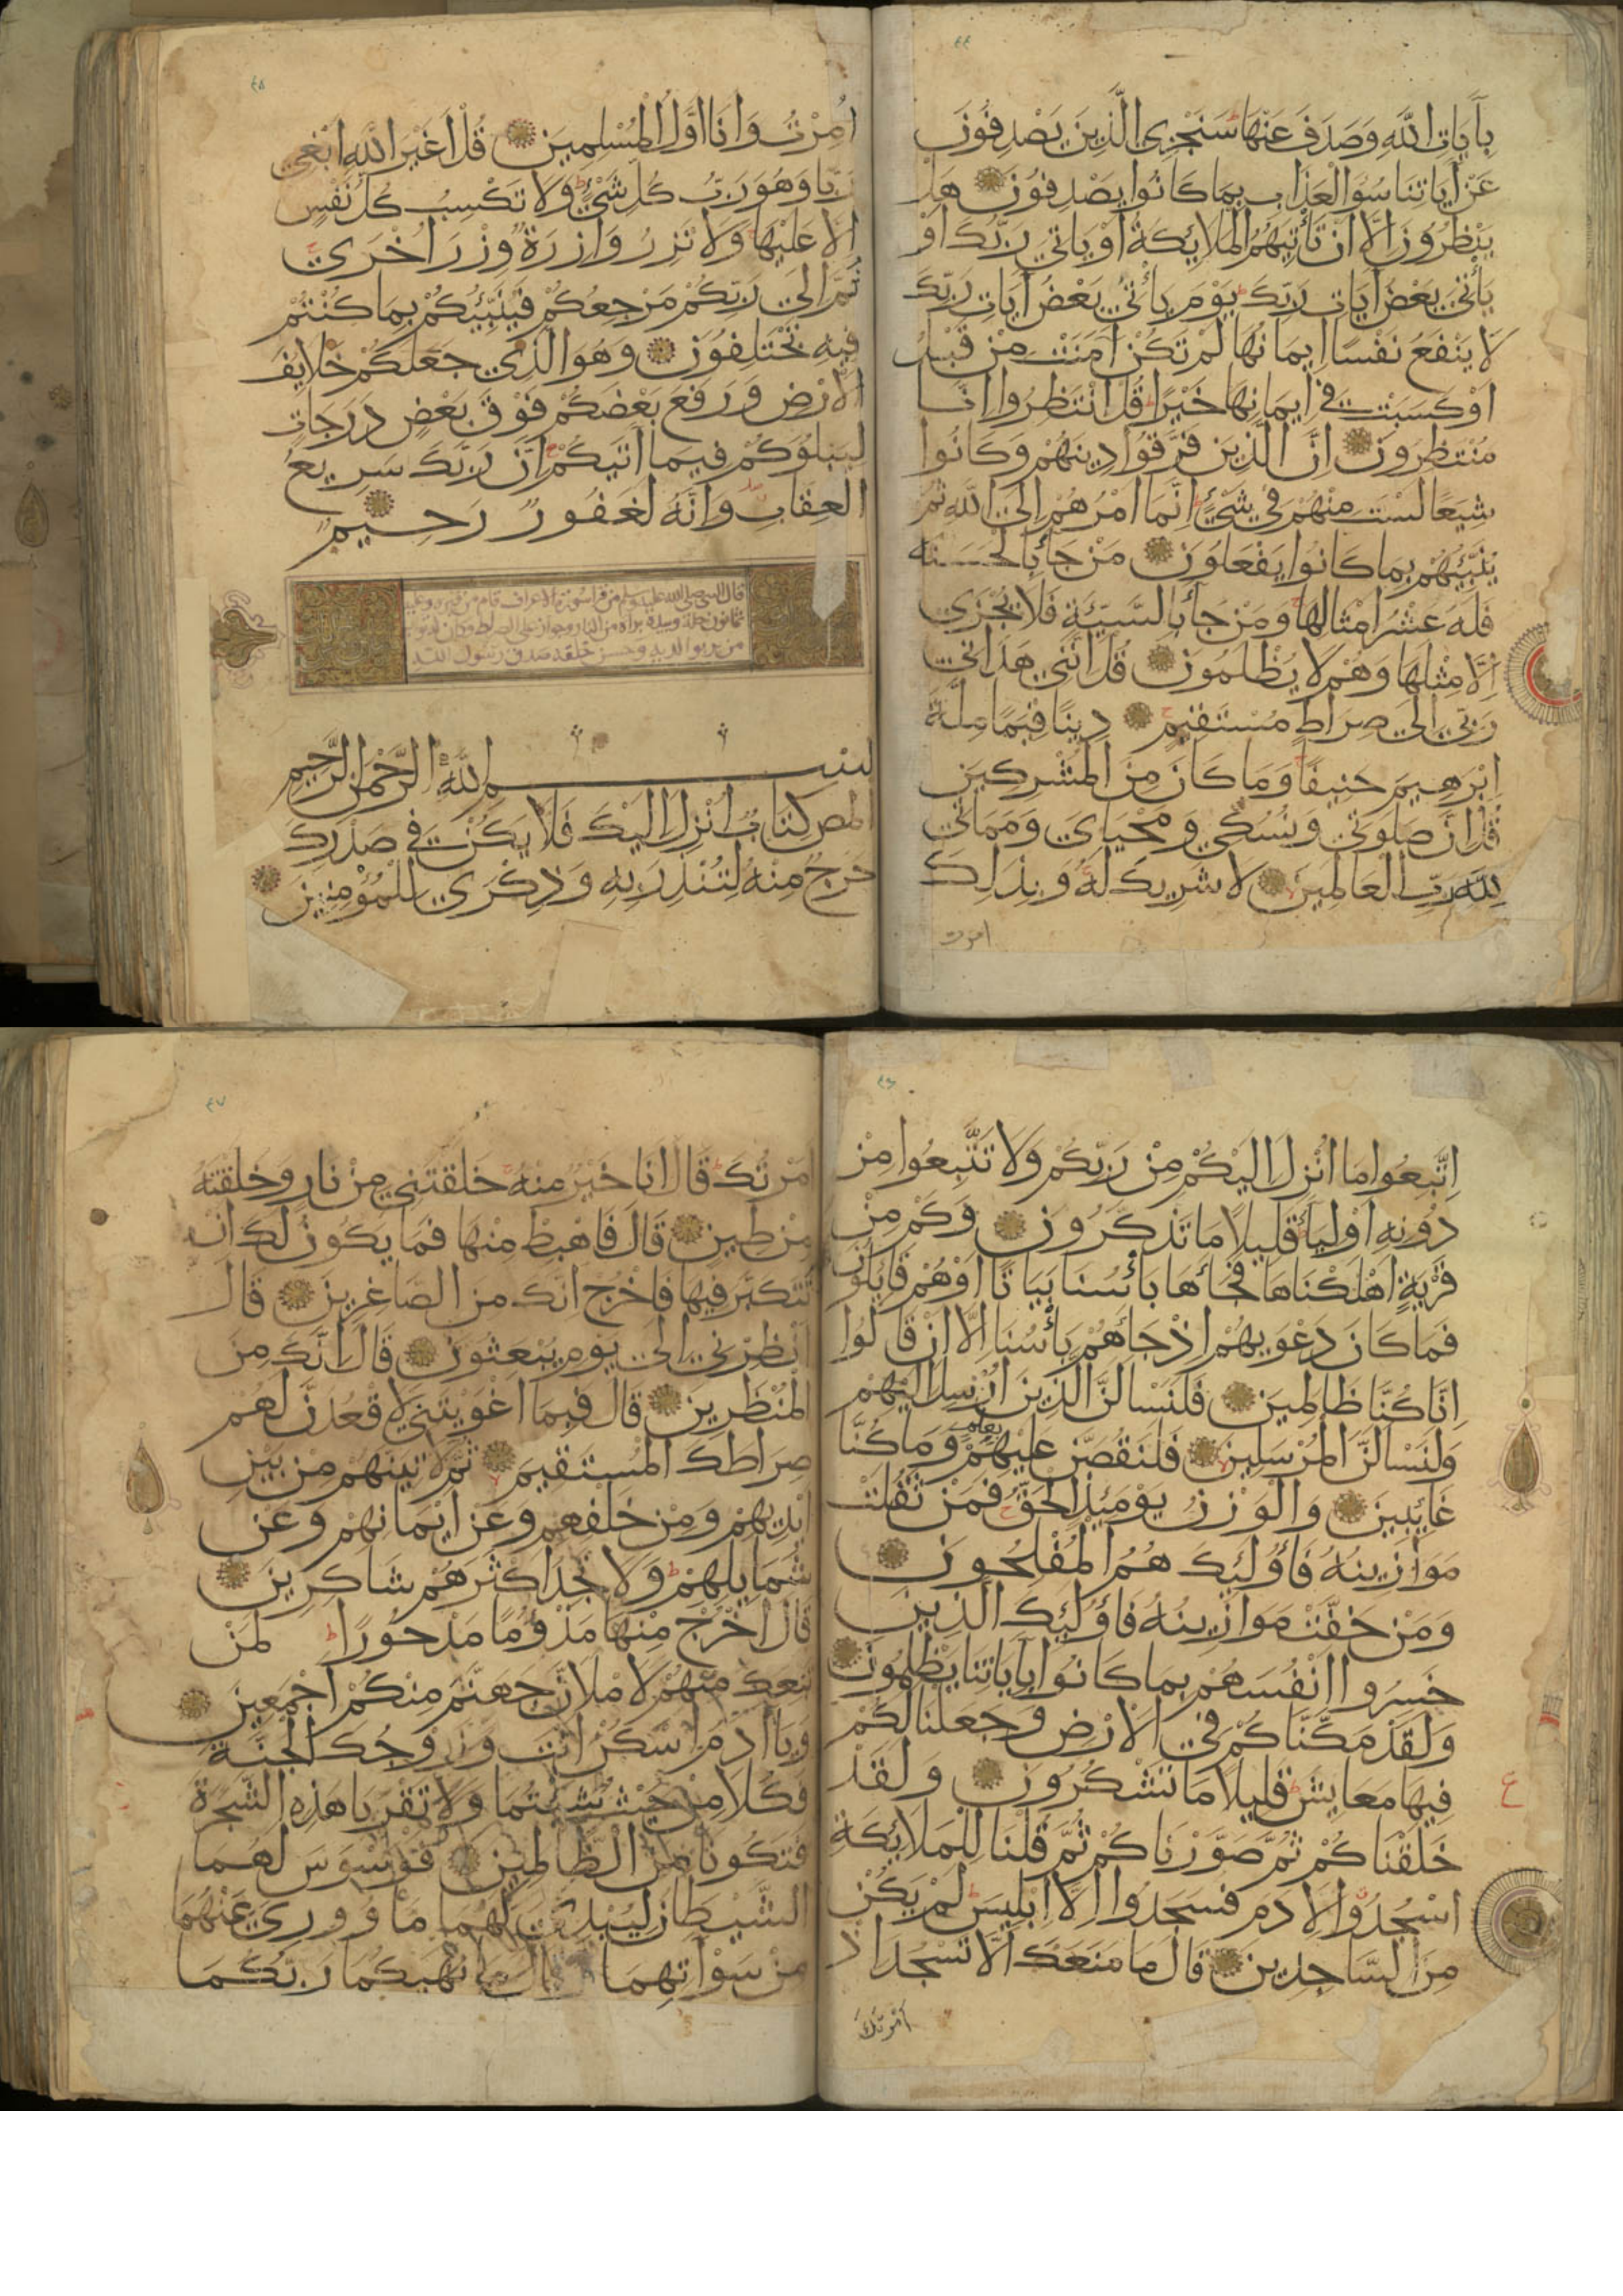 ٤٤
بآيات الله وصدف عنها سنجزي الذين يصدفون
عن آياتنا سوء العذاب بما كانوا يصدفون هل
ينظرون الا ان تأتيهم الملائكة أو يأتي ربك أو
يأتي بعض آيات ربك يوم يأتي بعض آيات ربك
لا ينفع نفسا ايمانها لم تكن آمنت من قبل
او كسبت في ايمانها خيرا قل انتظروا انا
منتظرون ان الذين فرقوا دينهم وكانوا
شيعا لست منهم في شيء انما امرهم الى الله ثم
ينبئهم بما كانوا يفعلون من جاء بالحسنة
فله عشر امثالها ومن جاء بالسيئة فلا يجزى
الا مثلها وهم لا يظلمون قل انني هداني
ربي الى صراط مستقيم دينا قيما ملة
ابرهيم حنيفا وما كان من المشركين
قل ان صلوتي ونسكي ومحياي ومماتي
لله رب العالمين لا شريك له وبذلك
امرت
٤٥
امرت وانا اول المسلمين قل اغير الله ابغي
ربا وهو رب كل شيء ولا تكسب كل نفس
الا عليها ولا تزر وازرة وزر اخرى
ثم الى ربكم مرجعكم فينبئكم بما كنتم
فيه تختلفون وهو الذي جعلكم خلايف
الارض ورفع بعضكم فوق بعض درجات
ليبلوكم فيما اتيكم ان ربك سريع
العقاب وانه لغفور رحيم
قال النبي صلى الله عليه وسلم من قرأ سورة الاعراف قام من قبره وعليه
ثمانون حلة وبيده براة من النار وجواز على الصراط وكان
من بر بوالديه وحسن خلقه صدق رسول الله
بسم الله الرحمن الرحيم
المص كتاب انزل اليك فلا يكن في صدرك
حرج منه لتنذر به وذكرى للمؤمنين
٤٦
اتبعوا ما انزل اليكم من ربكم ولا تتبعوا من
دونه اولياء قليلا ما تذكرون وكم من
قرية اهلكناها فجاءها بأسنا بياتا او هم قايلون
فما كان دعويهم اذ جاءهم بأسنا الا ان قالوا
انا كنا ظالمين فلنسالن الذين ارسل اليهم
ولنسالن المرسلين فلنقصن عليهم بعلم وما كنا
غايبين والوزن يومئذ الحق فمن ثقلت
موازينه فاولئك هم المفلحون
ومن خفت موازينه فاولئك الذين
خسروا انفسهم بما كانوا بآياتنا يظلمون
ولقد مكناكم في الارض وجعلنا لكم
فيها معايش قليلا ما تشكرون ولقد
ع
خلقناكم ثم صورناكم ثم قلنا للملائكة
اسجدوا لادم فسجدوا الا ابليس لم يكن
من الساجدين قال ما منعك الا تسجد اذ
امرتك
٤٧
امرتك قال انا خير منه خلقتني من نار وخلقته
من طين قال فاهبط منها فما يكون لك ان
تتكبر فيها فاخرج انك من الصاغرين قال
انظرني الى يوم يبعثون قال انك من
المنظرين قال فبما اغويتني لاقعدن لهم
صراطك المستقيم ثم لاتينهم من بين
ايديهم ومن خلفهم وعن ايمانهم وعن
شمايلهم ولا تجد اكثرهم شاكرين
قال اخرج منها مذؤما مدحورا لمن
تبعك منهم لاملان جهنم منكم اجمعين
ويا ادم اسكن انت وزوجك الجنة
فكلا من حيث شئتما ولا تقربا هذه الشجرة
فتكونا من الظالمين فوسوس لهما
الشيطان ليبدي لهما ما ووري عنهما
من سوآتهما وقال ما نهيكما ربكما